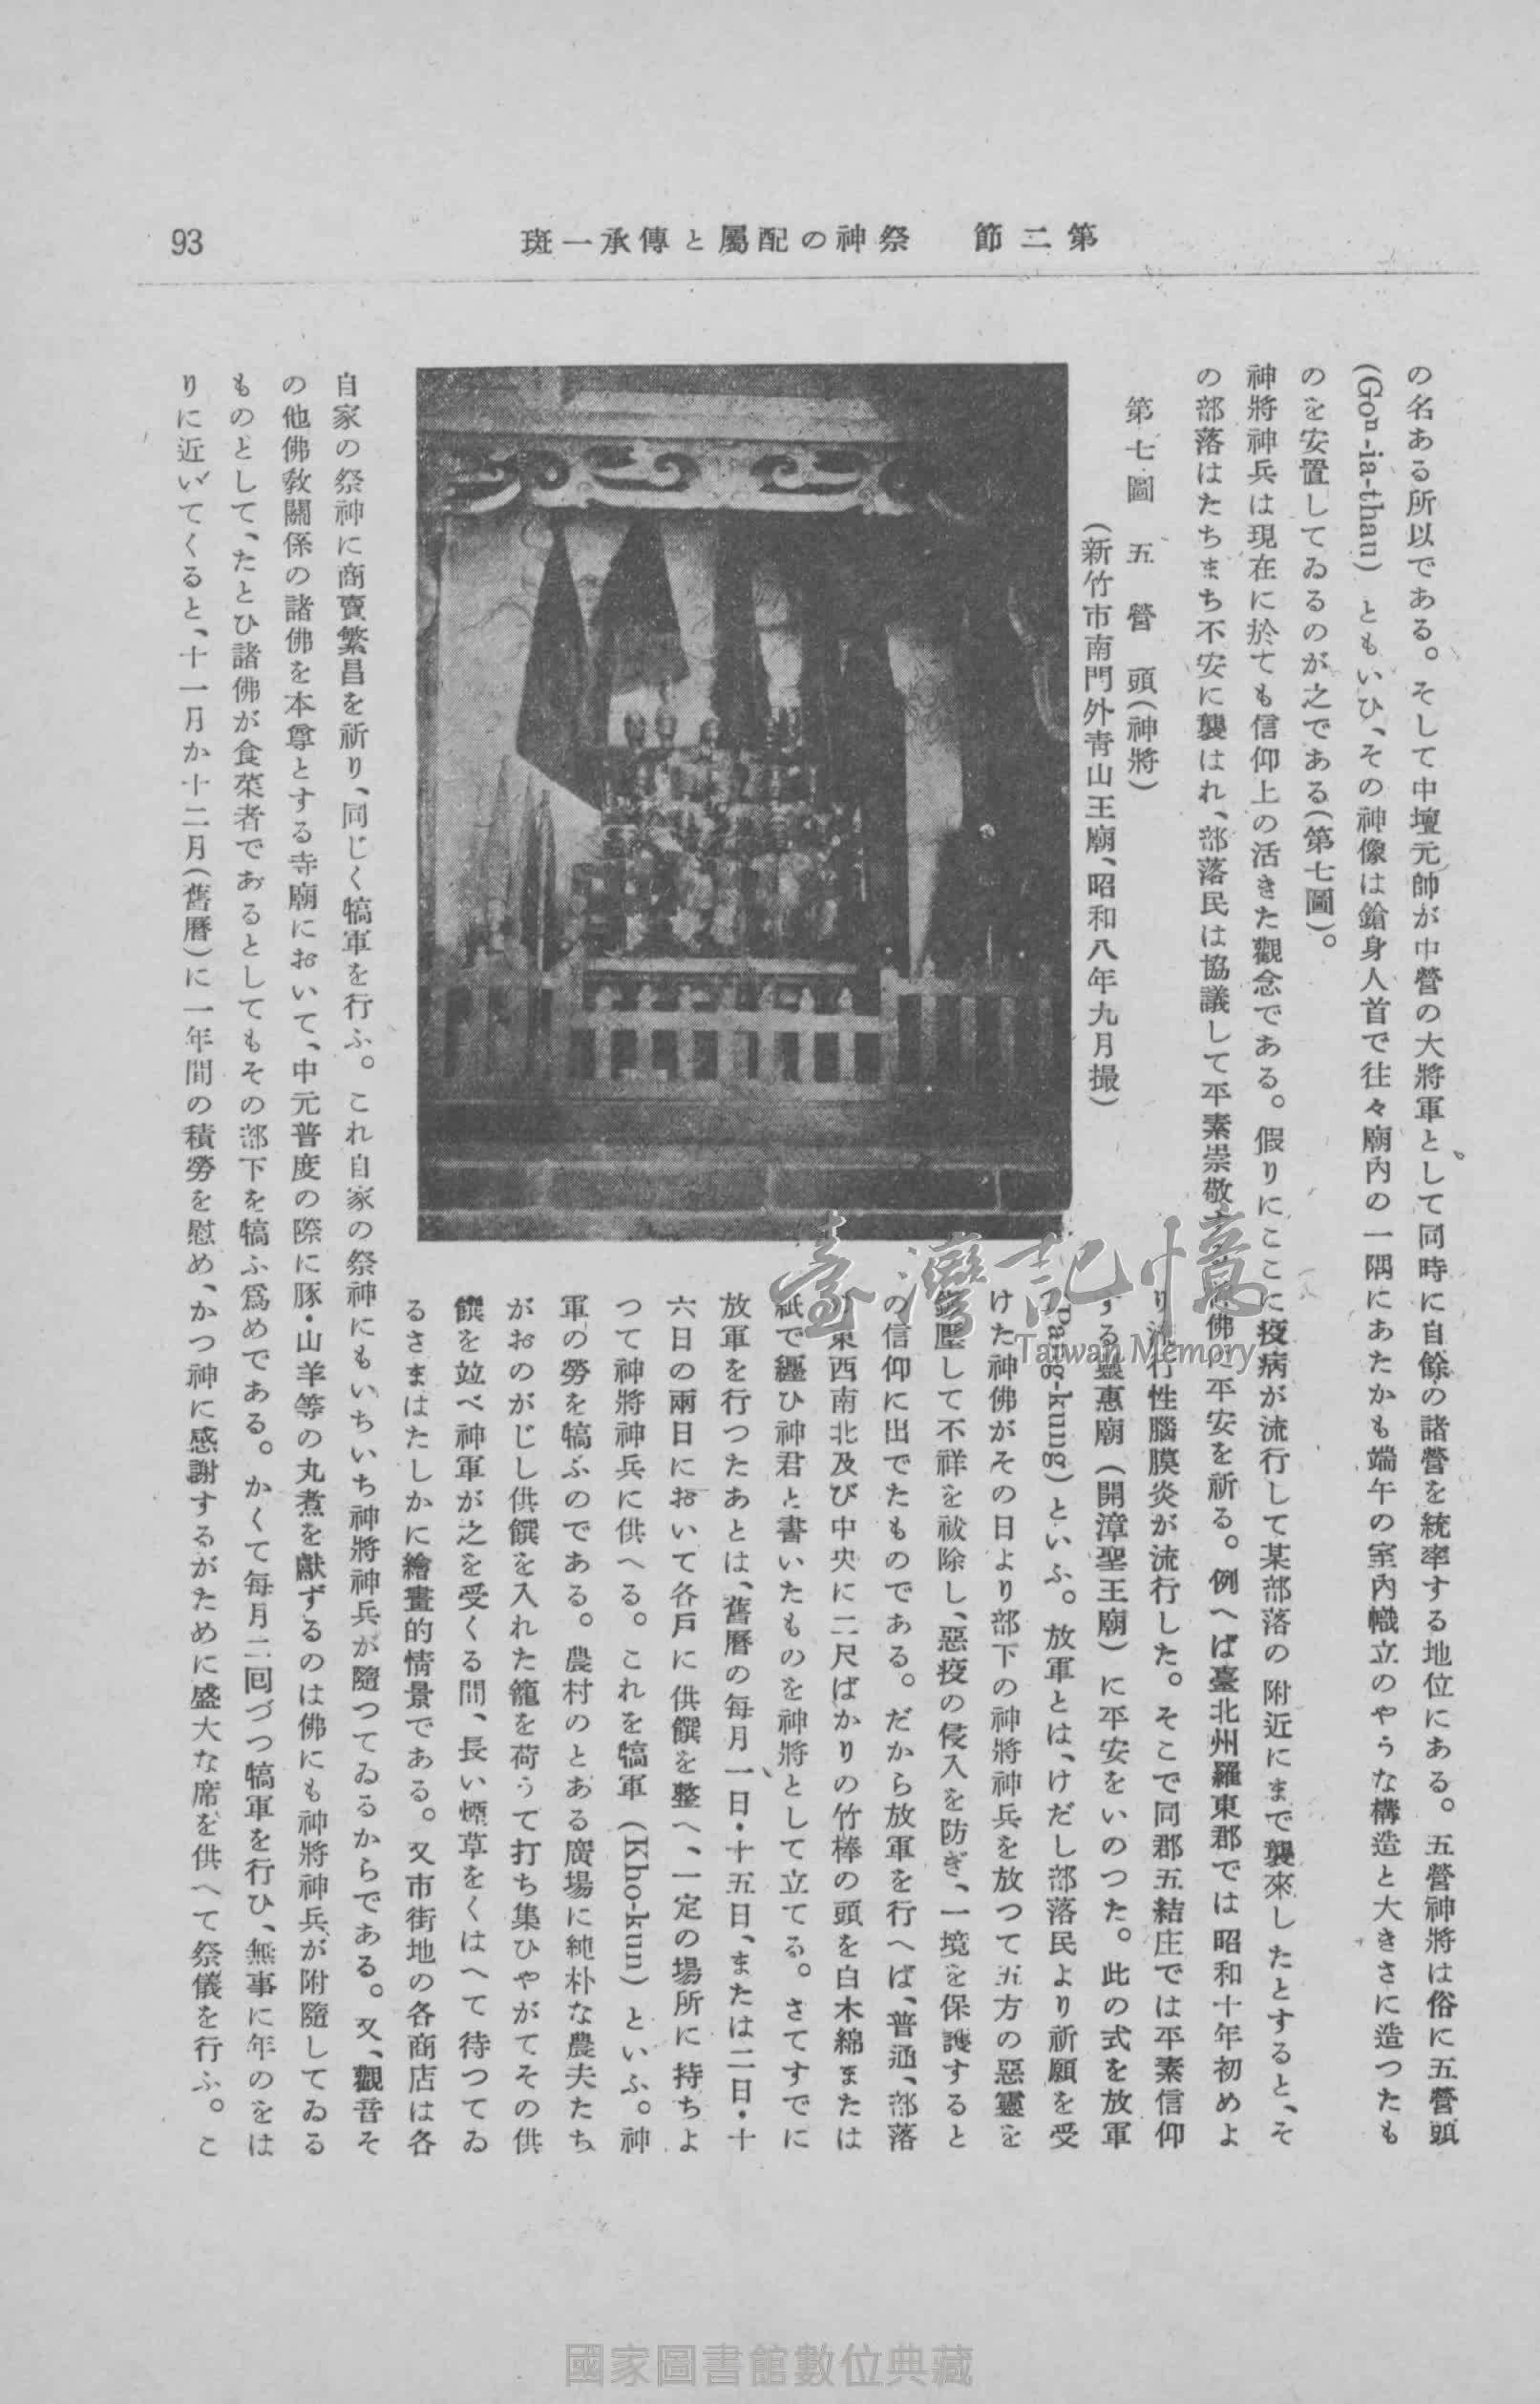 第二節　祭神の配屬と傳承一斑
93
の名ある所以である。そして中壇元帥が中營の大將軍として同時に自餘の諸營を統率する地位にある。五營神將は俗に五營頭
(Goⁿ-ia-thau) ともいひ、その神像は鎗身人首で往々廟內の一隅にあたかも端午の室內幟立のやうな構造と大きさに造つたも
のを安置してゐるのが之である(第七圖)。
神將神兵は現在に於ても信仰上の活きた觀念である。假りにここに疫病が流行して某部落の附近にまで襲來したとすると、そ
の部落はたちまち不安に襲はれ、部落民は協議して平素崇敬 佛に平安を祈る。例へば臺北州羅東郡では昭和十年初めよ
第七圖　五營頭(神將)
(新竹市南門外青山王廟、昭和八年九月撮)
り流行性腦膜炎が流行した。そこで同郡五結庄では平素信仰
する靈惠廟(開漳聖王廟)に平安をいのつた。此の式を放軍
Pang-kung)といふ。放軍とは、けだし部落民より祈願を受
けた神佛がその日より部下の神將神兵を放つて五方の惡靈を
壓して不祥を祓除し、惡疫の侵入を防ぎ、一境を保護すると
の信仰に出でたものである。だから放軍を行へば、普通、部落
東西南北及び中央に二尺ばかりの竹棒の頭を白木綿または
紙で纒ひ神君と書いたものを神將として立てる。さてすでに
放軍を行つたあとは、舊曆の每月一日・十五日、または二日・十
六日の兩日において各戶に供饌を整へ、一定の場所に持ちよ
つて神將神兵に供へる。これを犒軍 (Kho-kun) といふ。神
軍の勞を犒ふのである。農村のとある廣場に純朴な農夫たち
がおのがじし供饌を入れた籠を荷うて打ち集ひやがてその供
饌を竝べ神軍が之を受くる間、長い煙草をくはへて待つてゐ
るさまはたしかに繪畫的情景である。又市街地の各商店は各
自家の祭神に商賣繁昌を祈り、同じく犒軍を行ふ。これ自家の祭神にもいちいち神將神兵が隨つてゐるからである。又、觀音そ
の他佛敎關係の諸佛を本尊とする寺廟において、中元普度の際に豚・山羊等の丸煮を獻ずるのは佛にも神將神兵が附隨してゐる
ものとして、たとひ諸佛が食菜者であるとしてもその部下を犒ふ爲めである。かくて每月二回づつ犒軍を行ひ、無事に年のをは
りに近いてくると、十一月か十二月(舊曆)に一年間の積勞を慰め、かつ神に感謝するがために盛大な席を供へて祭儀を行ふ。こ
臺灣記憶
Taiwan Memory
國家圖書館數位典藏